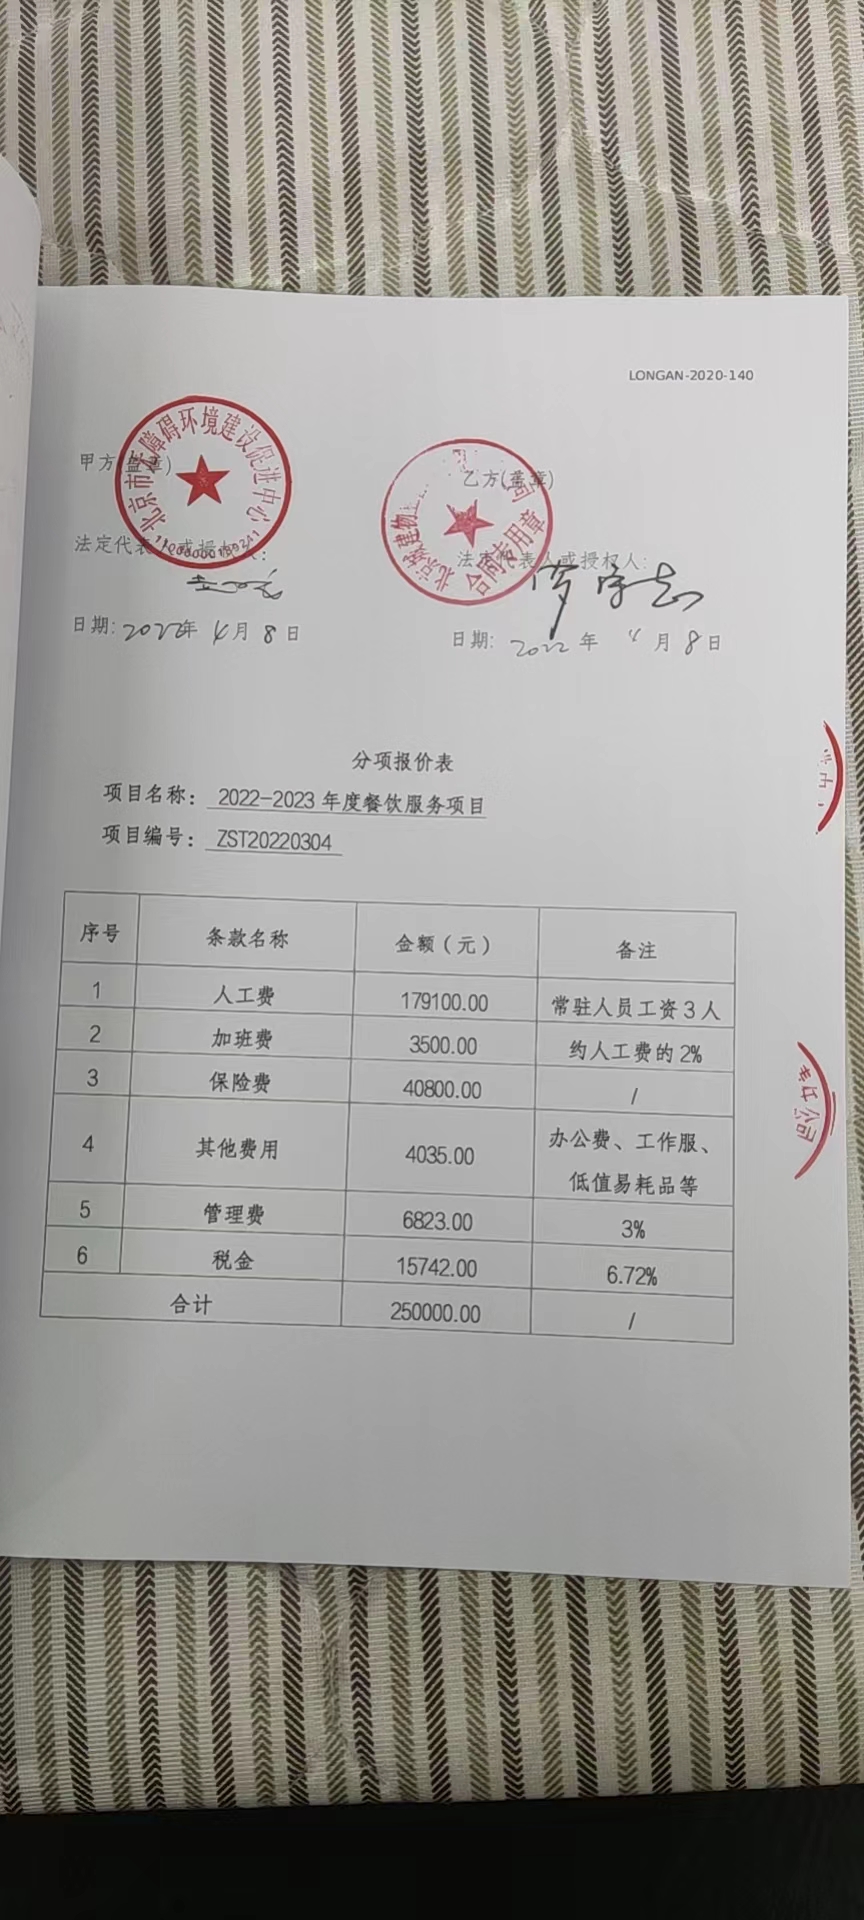 LONGAN-2020-140
甲方(盖章)
乙方(盖章)
北京市无障碍环境建设促进中心
合同专用章
法定代表人或授权人:
法定代表人或授权人:
日期: 2022年 4月 8日
日期: 2022年 4月 8日
分项报价表
项目名称: 2022-2023年度餐饮服务项目
项目编号: ZST20220304
序号 条款名称 金额(元) 备注
1 人工费 179100.00 常驻人员工资3人
2 加班费 3500.00 约人工费的2%
3 保险费 40800.00 /
4 其他费用 4035.00 办公费、工作服、
低值易耗品等
5 管理费 6823.00 3%
6 税金 15742.00 6.72%
合计 250000.00 /